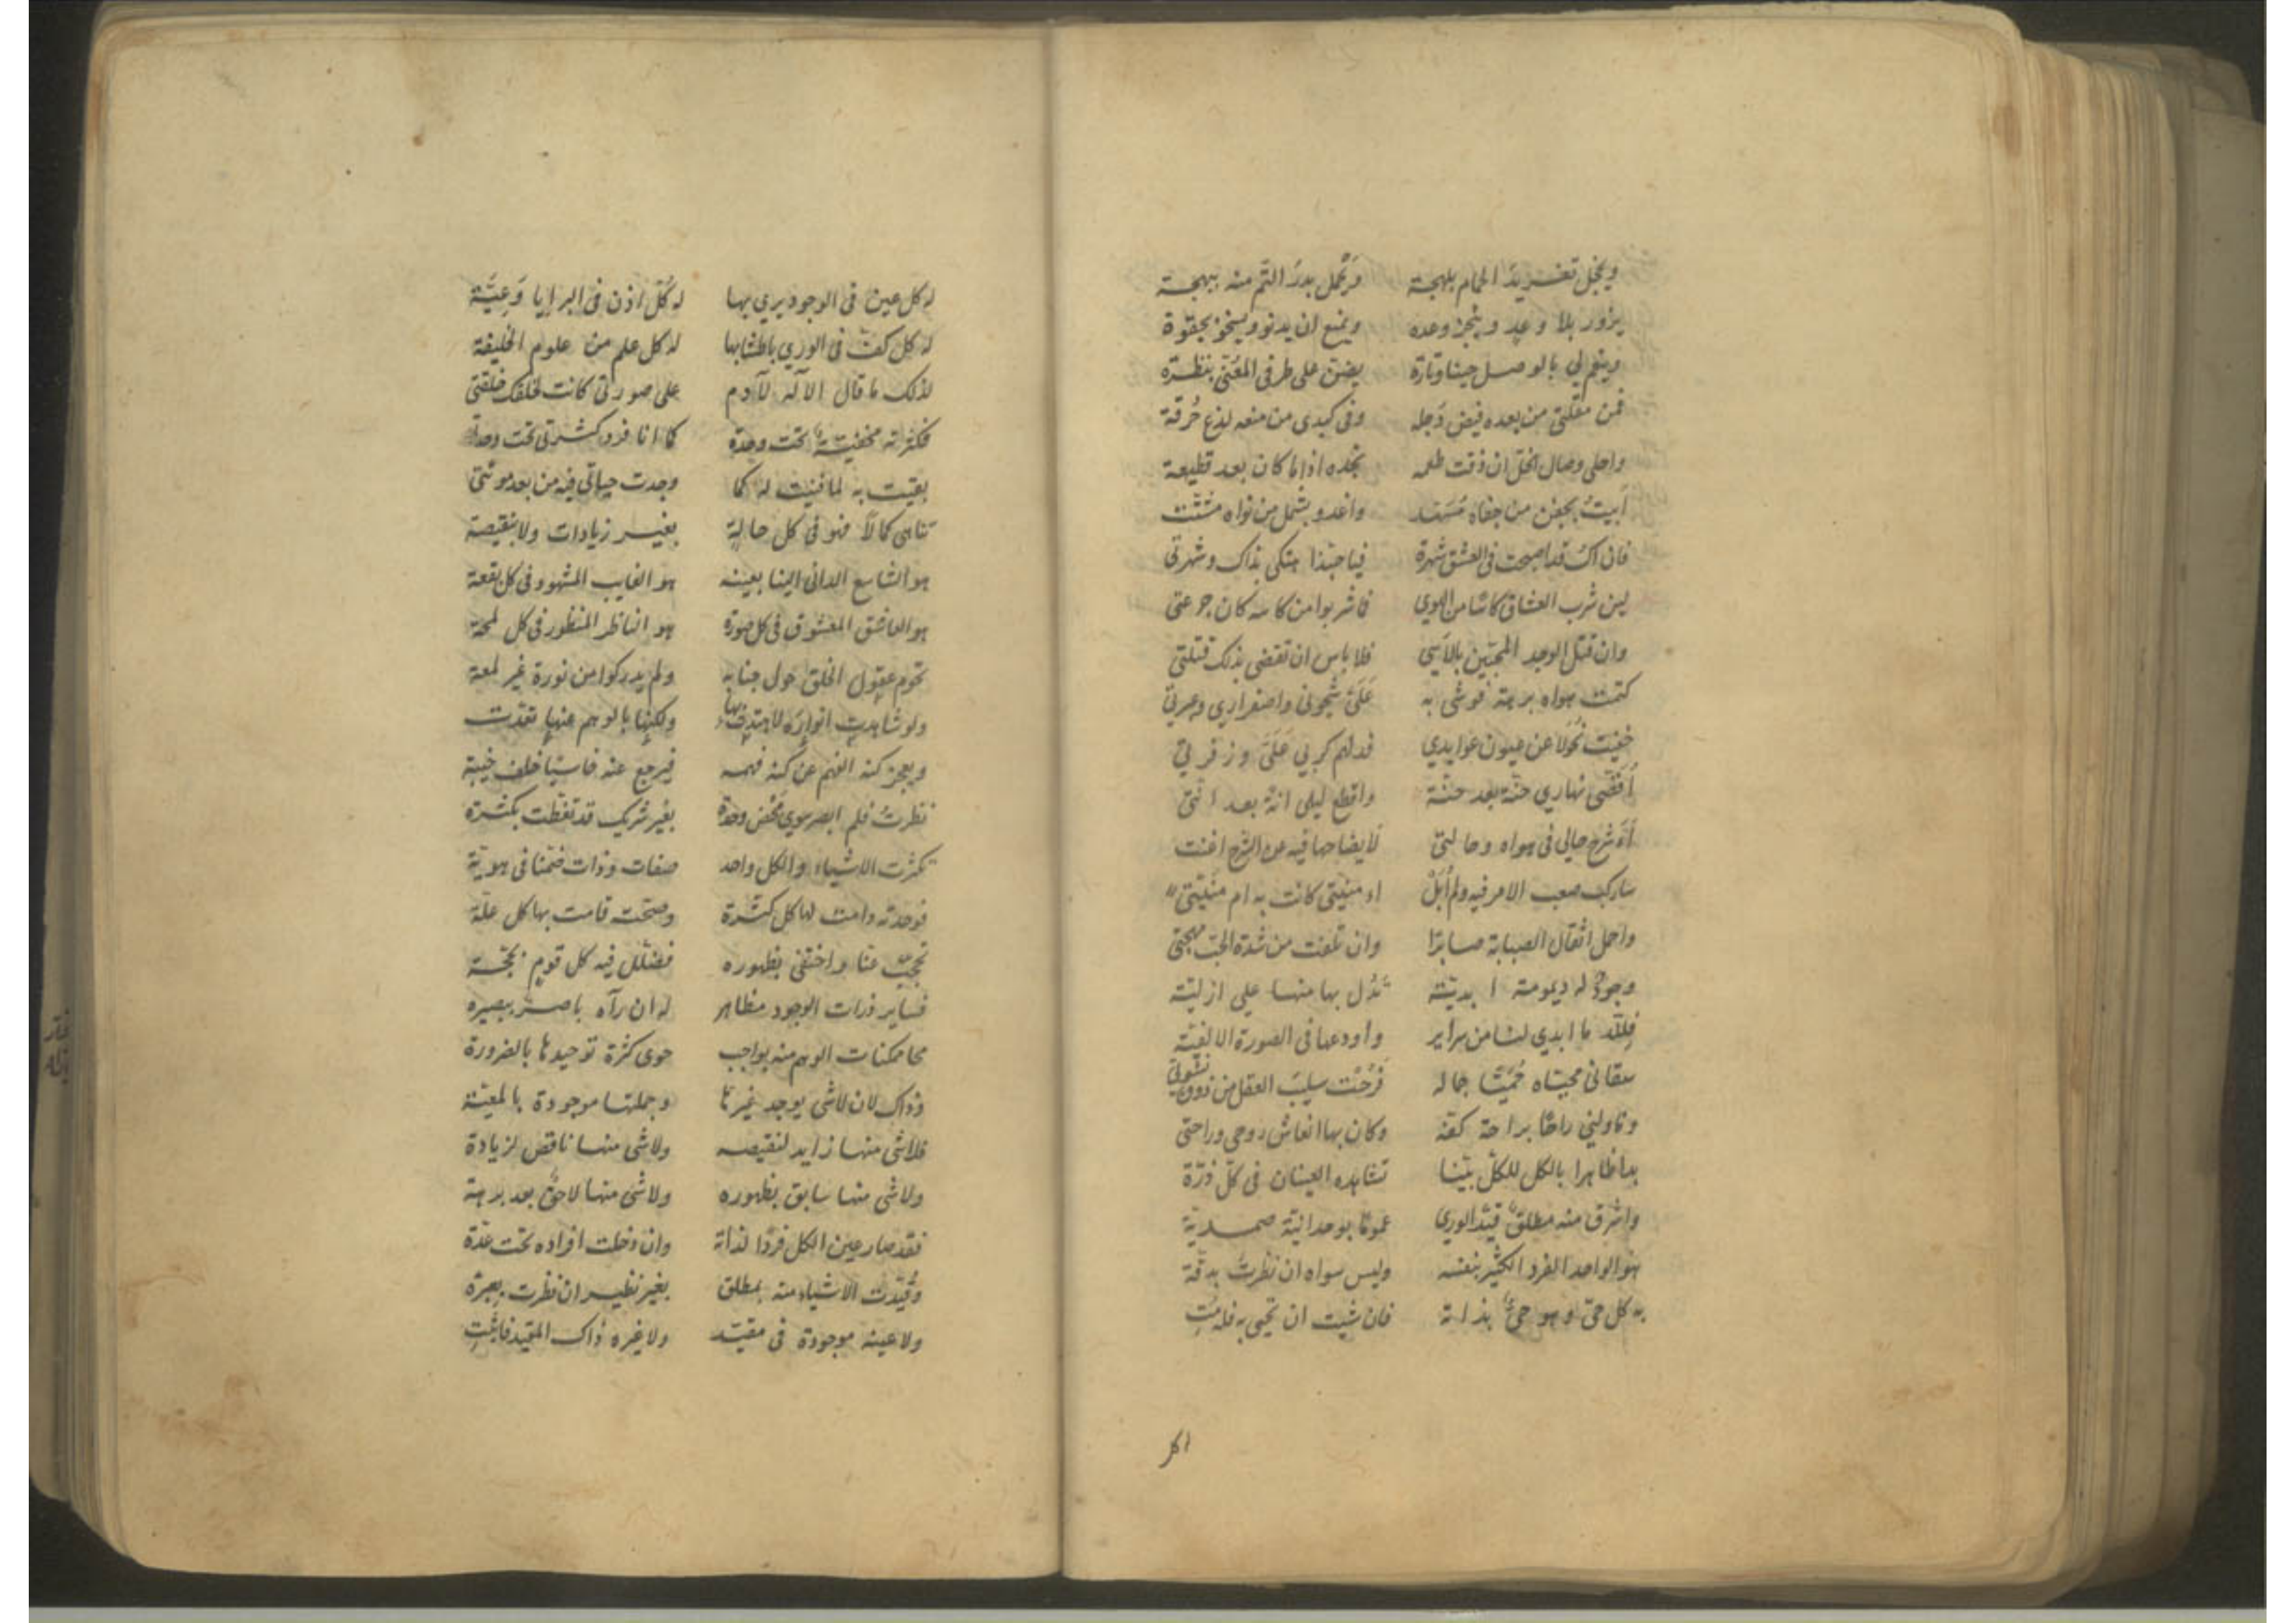 ويخجل تغريد الحمام بلهجة وتخجل بدر التم منه ببهجة
يزور بلا وعد وينجز وعده ويمنع ان يدنو ويسخو بجفوة
وينعم لي بالوصل حينا وتارة يضن على طرفى المعنى بنظرة
فمن مقلتى من بعده فيض دجلة وفى كبدى من منعه لذع حرقة
واحلى وصال الخل ان ذقت طعمه تجده اذا ما كان بعد قطيعة
أبيت بجفن من جفاه مسهد واغدو بشمل من نواه مشتت
فان اك قد اصبحت فى العشق شهرة فيا حبذا هتكى بذاك وشهرتى
لين شرب العشاق كاسا من الهوي فاشربوا من كاسه كان جوعتى
وان قتل الوجد المحبين بالاسي فلا باس ان تقضى بذلك قتلتى
كتمت هواه برهة فوشى به على شجونى واصفراري وعبرتى
خفيت نحولا عن عيون عوايدي فدلهم كربي على وزفرتي
أقضى نهاري حنة بعد حنة واقطع ليلى انة بعد انتى
شرح حالي فى هواه وحالتى لايضاحها فيه عن الشرح اغنت
ساركب صعب الامر فيه ولم أبل اء منيتى كانت به ام منيتى
واحمل اثقال الصبابة صابرا وان تلفت من شدة الحب مهجتى
وجود له ديمومة ابدية تدل بها منها على ازلية
فلله ما ابدي لنا من سراير واودعها فى الصورة الالفية
سقانى محياه حميا جماله فرحت سليب العقل من ذوق نشوتى
وناولني راحا براحة كفه وكان بها انعاش روحى وراحتى
بدا ظاهرا بالكل للكل بينا تشاهده العينان فى كل ذرة
واشرق منه مطلق قيد الوري عموما بوحدانية صمدية
هو الواحد الفرد الكثير بنفسه وليس سواه ان نظرت بدقة
به كل حى وهو حى بذاته فان شيت ان تحيى به فله مت
له كل عين فى الوجود يري بها له كل اذن فى البرايا وعية
له كل كف فى الوري باطشا بها له كل علم من علوم الخليقة
لذلك ما قال الاله لآدم على صورتى كانت لخلقك خلقتى
فكثرته مخفية تحت وحدة كما انا فرد كثرتى تحت وحدتى
بقيت به لما فنيت له كما وجدت حياتى فيه من بعد موتتى
تناهى كمالا فهو فى كل حالة بغير زيادات ولا بنقيصة
هو الشاسع الدانى الينا بعينه هو الغايب المشهود فى كل بقعة
هو العاشق المعشوق فى كل صورة هو الناظر المنظور فى كل لمحة
تحوم عقول الخلق حول جنابه ولم يدركوا من نوره غير لمعة
ولو شاهدت انواره لاهتدت بها ولكنها بالوهم عنها تعدت
ويعجز كنه الفهم عن كنه فهمه فيرجع عنه خاسئا خلف خيبة
نظرت فلم ابصر سوي محض وحدة بغير شريك قد تغطت بكثرة
تكثرت الاشياء والكل واحد صفات وذات ضمنا فى هوية
فوحدته دامت لها كل كثرة وصحت قامت بها كل علة
تحجب عنا واختفى بظهوره فضلل فيه كل قوم بحجة
فساير ذرات الوجود مظاهر له ان رآه باصر ببصيرة
محا ممكنات الوهم منه بواجب حوى كثرة توحيدها بالضرورة
وذاك لان لاشى يوجد غيرها وجملتها موجودة بالمعية
فلا شى منها زايد لنقيصة ولا شى منها ناقص لزيادة
ولا شى منها سابق بظهوره ولا شى منها لاحق بعد برهة
فقد صار عين الكل فردا لذاته وان دخلت افراده تحت عدة
وقيدت الاشياء منه بمطلق بغير نظير ان نظرت بعبرة
ولا عينه موجودة فى مقيد ولا غيره ذاك المقيد فاثبت